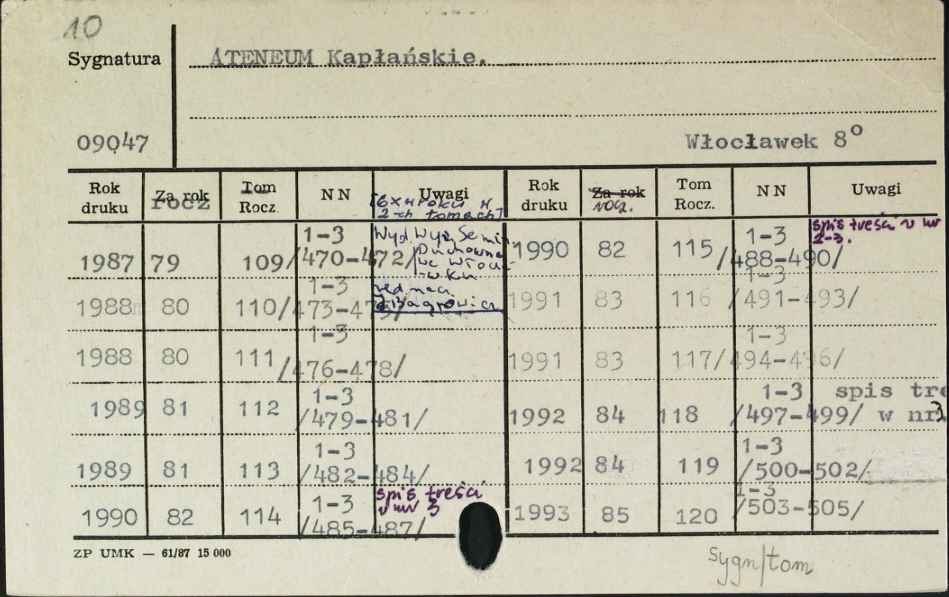 10
Sygnatura ATENEUM Kapłańskie.
09047 Włocławek 8°
Rok druku Za rok rocz Tom Rocz. NN Uwagi Rok druku Za rok rocz. Tom Rocz. NN Uwagi
[6 x w roku w 2-ch tomach]
1987 79 109 1-3 /470-472/ Wyd. Wyż. Semin. Duchowne we Włocławku
1988 80 110 1-3 /473-475/ red. nacz.
1988 80 111 1-3 /476-478/
1989 81 112 1-3 /479-481/
1989 81 113 1-3 /482-484/
1990 82 114 1-3 /485-487/ spis treści w nr 3
1990 82 115 1-3 /488-490/ spis treści w nr 2-3.
1991 83 116 1-3 /491-493/
1991 83 117 1-3 /494-496/
1992 84 118 1-3 /497-499/ spis tre w nr 3
1992 84 119 1-3 /500-502/
1993 85 120 1-3 /503-505/
ZP UMK — 61/87 15 000
sygn/tom